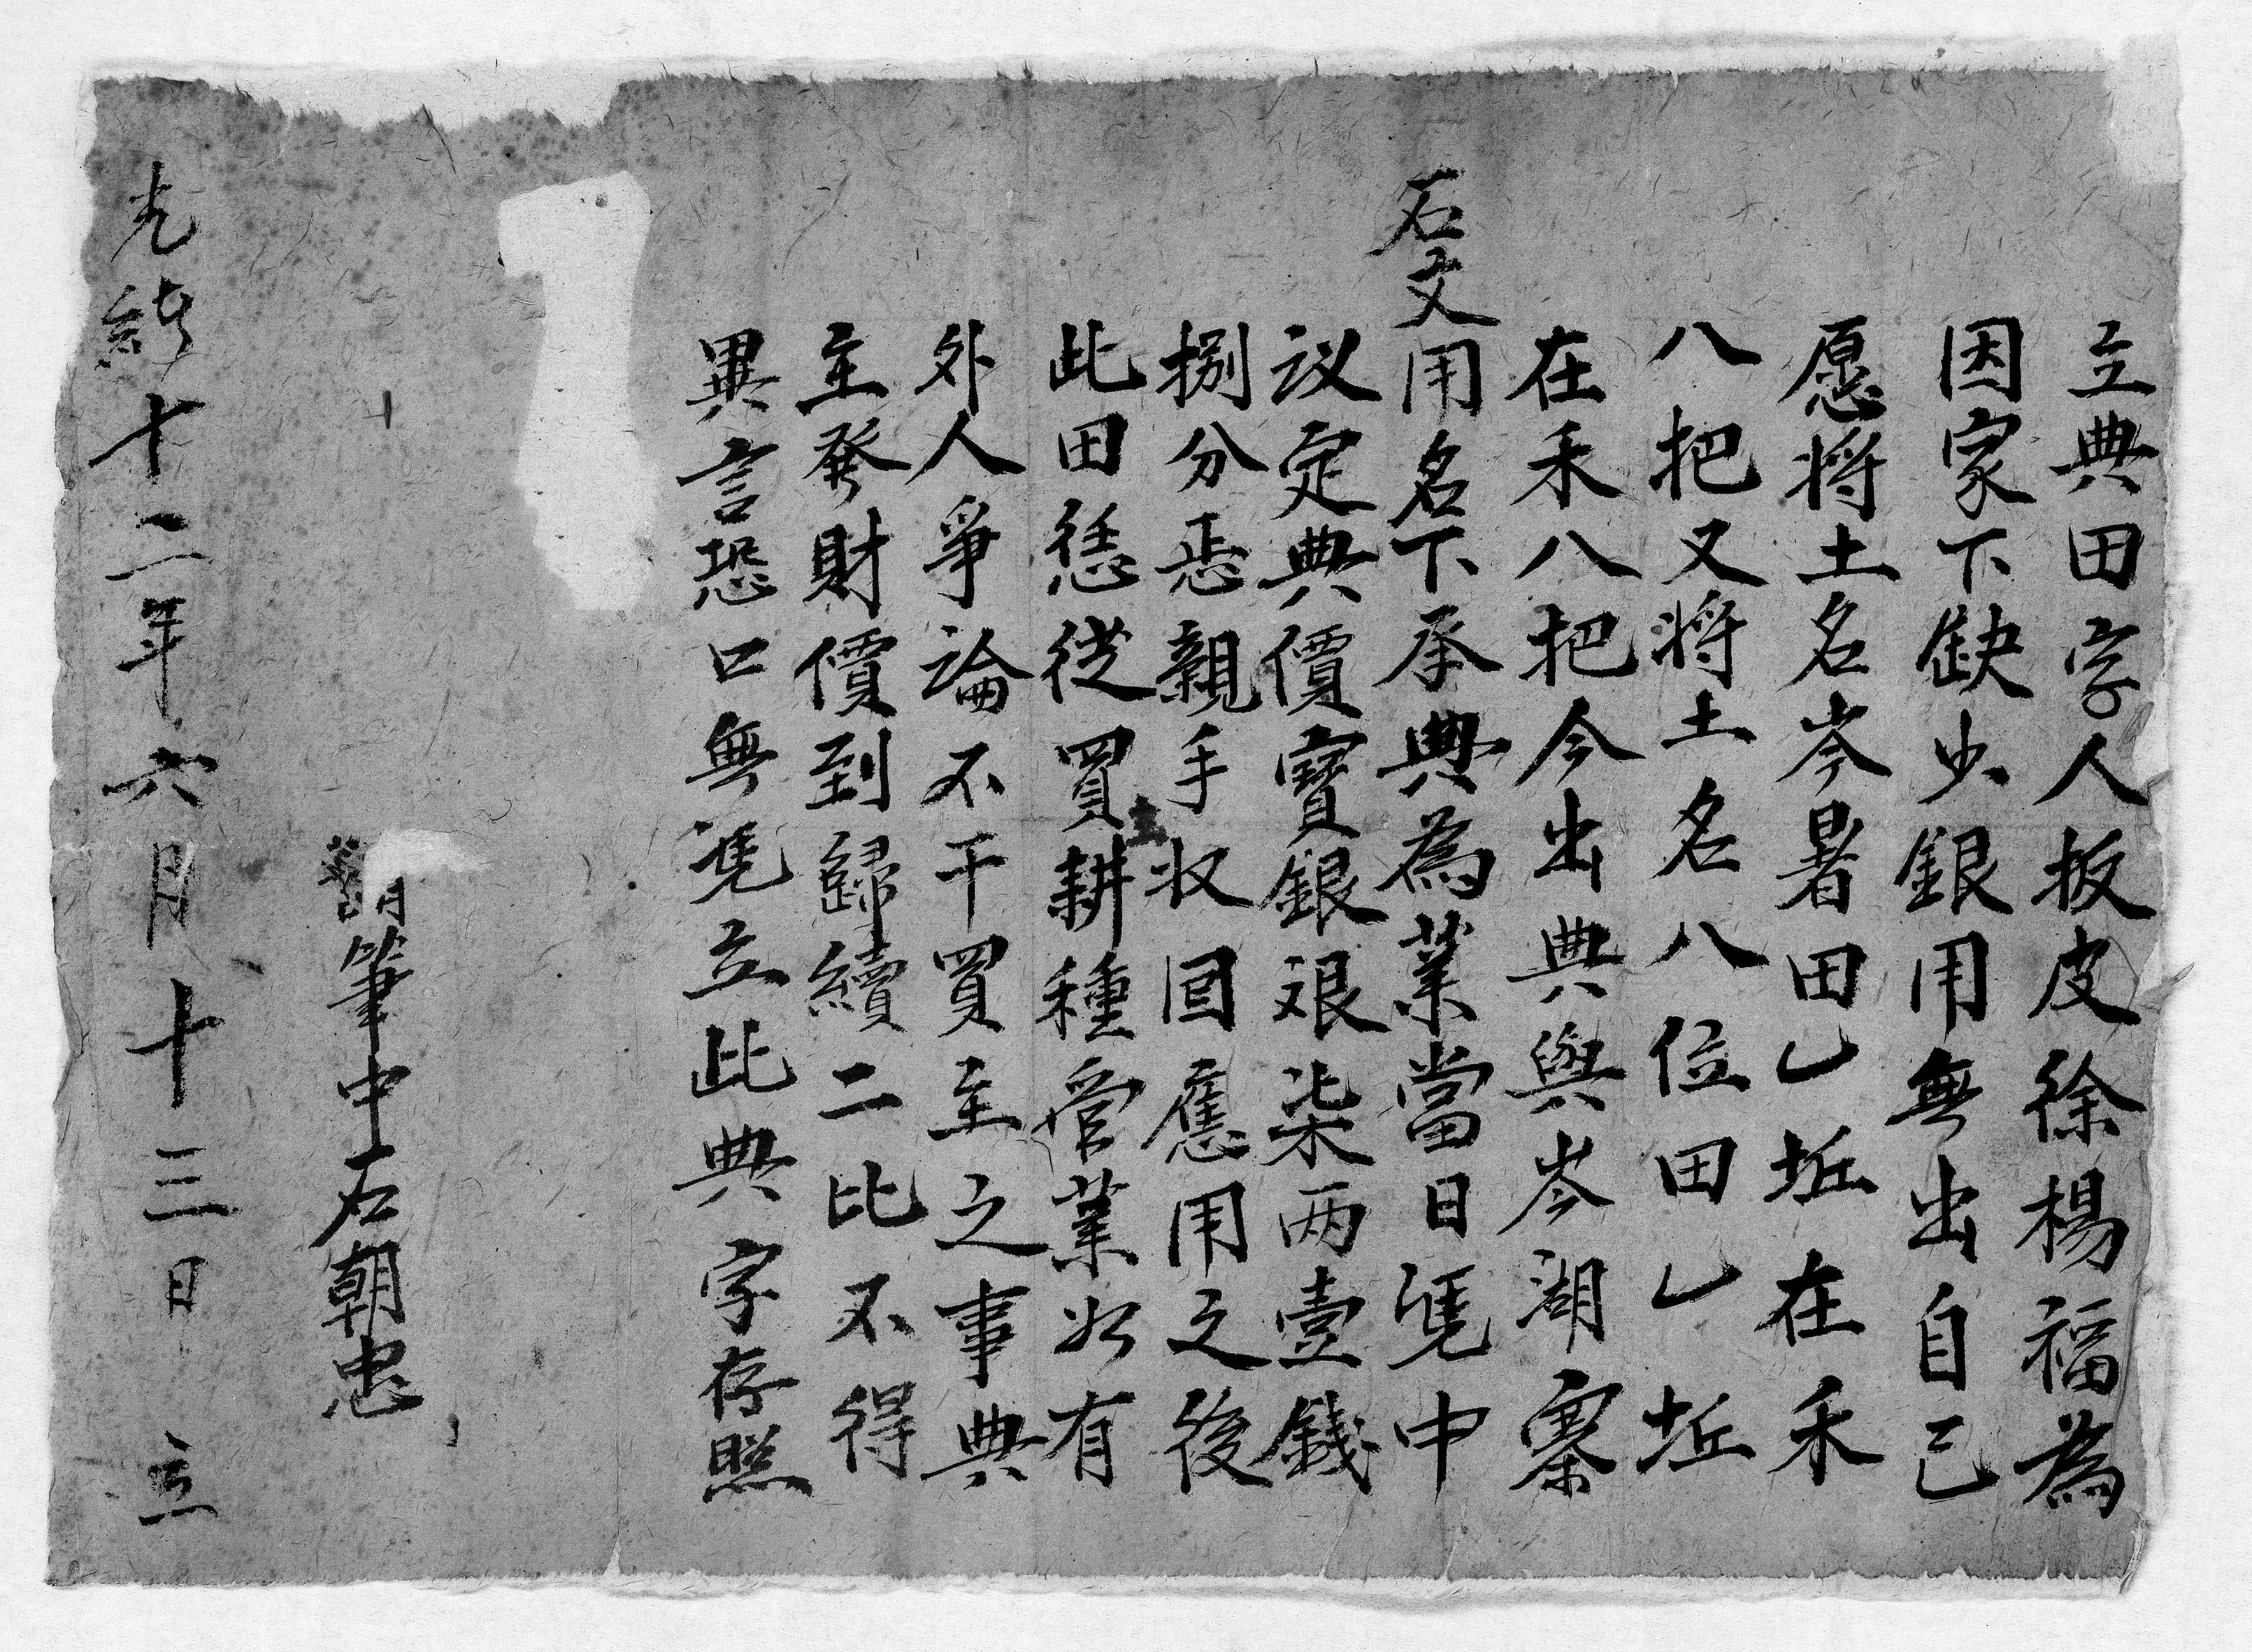 立典田字人扳皮徐楊福為
因家下缺少銀用無出自己
愿将土名岑暑田乚坵在禾
八把又将土名八位田乚坵
在禾八把今出典與岑湖寨
石文用名下承典為業當日凴中
议定典價寳銀艰柒两壹錢
捌分恁親手收囘應用之後
此田恁從買主耕種管業如有
外人爭論不干買主之事典
主發財價到歸續二比不得
異言恐口無凴立此典字存照
筆中石朝忠
光緒十二年六月十三日 立